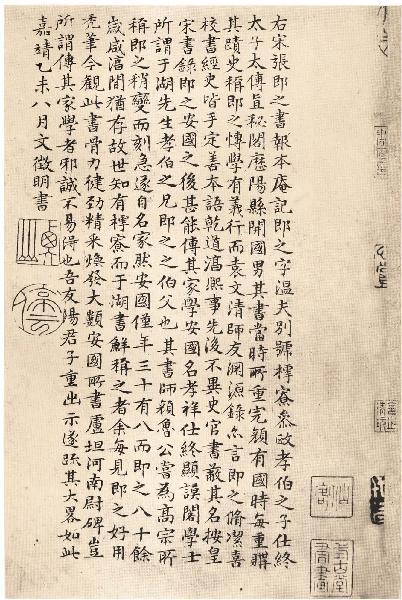 右宋張即之書報本庵記即之字溫夫別號樗寮參政孝伯之子仕終
太子太傅直秘閣歷陽縣開國男其書當時所重完顏有國時每重購
其蹟史稱即之博學有義行而袁文清師友淵源錄亦言即之脩潔喜
校書經史皆手定善本語乾道淳熙事先後不異史官書蔽其名按皇
宋書錄即之安國之後甚能傳其家學安國名孝祥仕終顯謨閣學士
所謂于湖先生孝伯之兄即之之伯父也其書師顏魯公嘗為高宗所
稱即之稍變而刻急遂自名家然安國僅年三十有八而即之八十餘
歲咸淳間猶存故世知有樗寮而于湖書鮮稱之者余每見即之好用
禿筆今觀此書骨力健勁精采煥發大類安國所書盧坦河南尉碑豈
所謂傳其家學者邪誠不易得也吾友湯君子重出示遂疏其大畧如此
嘉靖乙未八月文徵明書
停雲